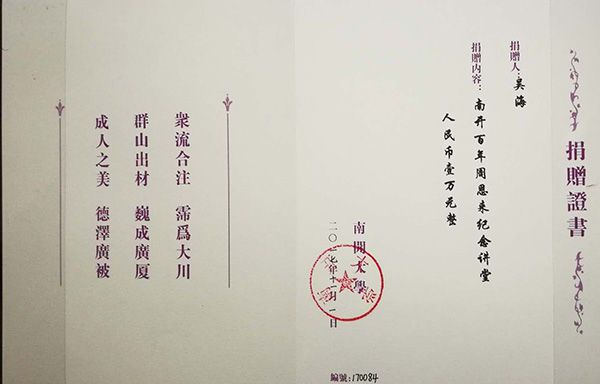 捐贈證書
捐贈人:吴海
捐贈内容:南开百年周恩来纪念讲堂
人民币壹万元整
南開大學
二〇一七年十一月一日
編號:170084
衆流合注 霈爲大川
群山出材 巍成廣厦
成人之美 德澤廣被